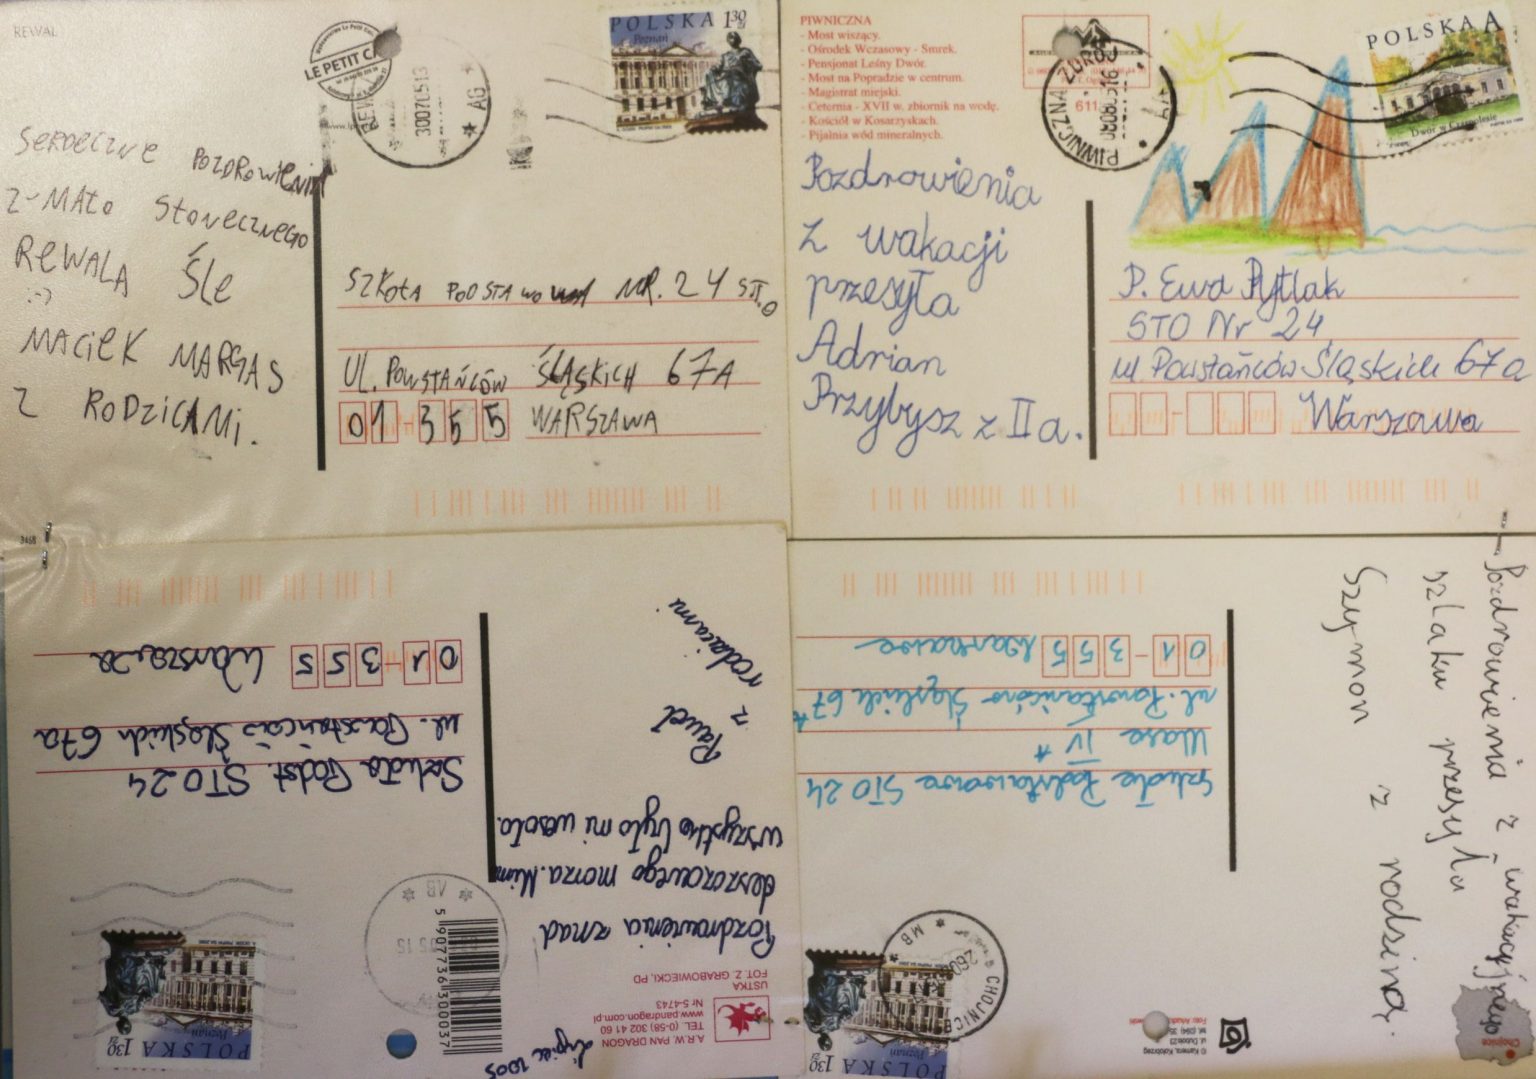 REWAL
LE PETIT CAF
300705 13
AG
POLSKA 130 zł
Poznań
SERDECZNE POZDROWIENIA
Z-MAŁO SŁONECZNEGO
REWALA ŚLE
:-)
MACIEK MARGAS
Z RODZICAMI.
SZKOŁA PODSTAWOWA NR. 24 STO
UL. POWSTAŃCÓW ŚLĄSKICH 67A
01-355 WARSZAWA
3468
PIWNICZNA
- Most wiszący.
- Ośrodek Wczasowy - Smrek.
- Pensjonat Leśny Dwór.
- Most na Popradzie w centrum.
- Magistrat miejski.
- Ceternia - XVII w. zbiornik na wodę.
- Kościół w Kosarzyskach.
- Pijalnia wód mineralnych.
611
PIWNICZNA ZDRÓJ
080805 16
POLSKA A
Dwór w Czarnolesie
Pozdrowienia
z wakacji
przesyła
Adrian
Przybysz z IIa.
P. Ewa Pytlak
STO Nr 24
ul Powstańców Śląskich 67a
Warszawa
A.R.W. PAN DRAGON
TEL. (0-58) 302 41 60
www.pandragon.com.pl
Nr 5-4743
USTKA
FOT. Z. GRABOWIECKI, PD
lipiec 2005
Pozdrowienia znad
deszczowego morza. Mimo
wszystko było mi wesoło.
Paweł
z
rodzicami
5 907736 300037
AB
POLSKA 130 zł
Poznań
Szkoła Podst. STO 24
ul. Powstańców Śląskich 67a
01-355 Warszawa
Pozdrowienia z wakacyjnego
szlaku przesyła
Szymon z rodziną.
Chojnice
© Kamera, Kołobrzeg
ul. Dubois 23
CHOJNICE
MB
POLSKA 130 zł
Poznań
Szkoła Podstawowa STO 24
klasa IV A
ul. Powstańców Śląskich 67A
01-355 Warszawa